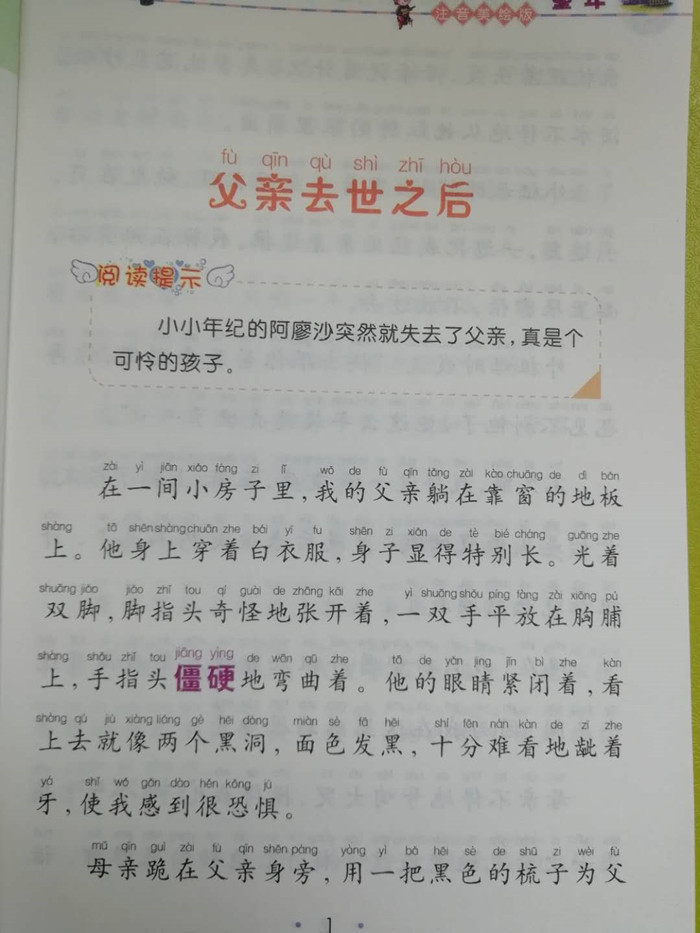 注音美绘版
童年
fù qīn qù shì zhī hòu
父亲去世之后
阅读提示
小小年纪的阿廖沙突然就失去了父亲，真是个
可怜的孩子。
zài yī jiān xiǎo fáng zi lǐ wǒ de fù qīn tǎng zài kào chuāng de dì bǎn
在一间小房子里，我的父亲躺在靠窗的地板
shàng tā shēn shàng chuān zhe bái yī fu shēn zi xiǎn de tè bié cháng guāng zhe
上。他身上穿着白衣服，身子显得特别长。光着
shuāng jiǎo jiǎo zhǐ tou qí guài de zhāng kāi zhe yì shuāng shǒu píng fàng zài xiōng pú
双脚，脚指头奇怪地张开着，一双手平放在胸脯
shàng shǒu zhǐ tou jiāng yìng de wān qū zhe tā de yǎn jing jǐn bì zhe kàn
上，手指头僵硬地弯曲着。他的眼睛紧闭着，看
shàng qù jiù xiàng liǎng gè hēi dòng miàn sè fā hēi shí fēn nán kàn de zī zhe
上去就像两个黑洞，面色发黑，十分难看地龇着
yá shǐ wǒ gǎn dào hěn kǒng jù
牙，使我感到很恐惧。
mǔ qīn guì zài fù qīn shēn páng yòng yì bǎ hēi sè de shū zi wèi fù
母亲跪在父亲身旁，用一把黑色的梳子为父
1